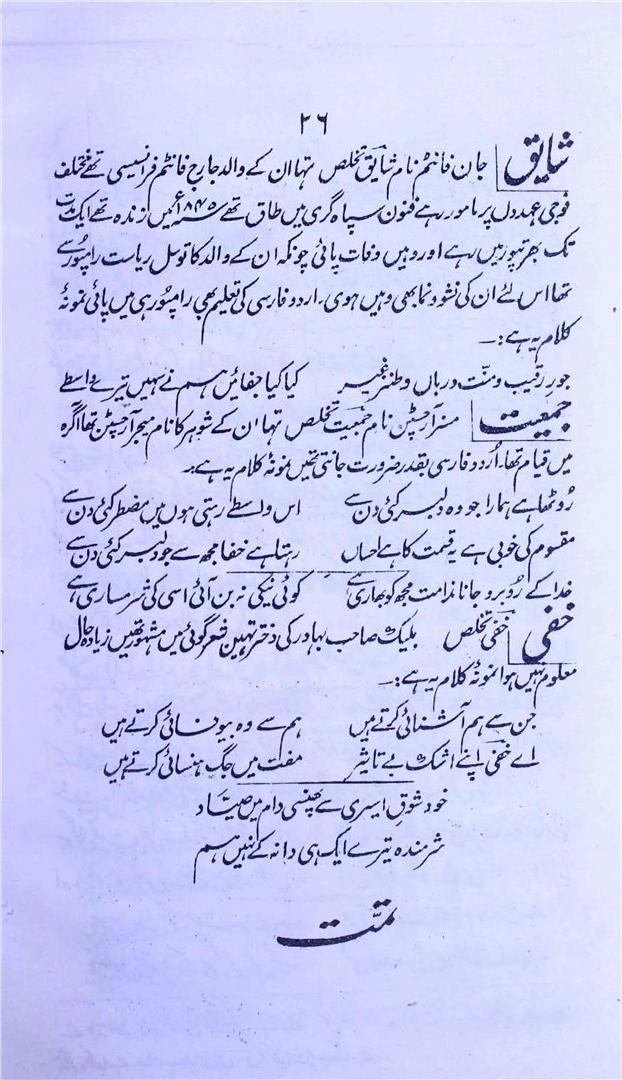 ۲۶
شایق جان فانٹم نام شایق تخلص تھا ان کے والد جارج فانٹم فرانسیسی تھے مختلف
فوجی عہدوں پر مامور رہے فنون سپاہ گری میں طاق تھے سنہ ۱۸۴۵ء میں زندہ تھے ایک مدت
تک بھرتپور میں رہے اور وہیں وفات پائی چونکہ ان کے والد کا توسل ریاست رامپور سے
تھا اس لئے ان کی نشو و نما بھی وہیں ہوی۔ اردو فارسی کی تعلیم بھی رامپور ہی میں پائی نمونۂ
کلام یہ ہے:۔
جورِ رقیب و منّت درباں و طنز غیر کیا کیا جفائیں ہم نے سہیں تیرے واسطے
جمعیت مسز آرجسٹن نام جمعیت تخلص تھا ان کے شوہر کا نام میجر آرجسٹن تھا آگرہ
میں قیام تھا۔ اُردو فارسی بقدر ضرورت جانتی تھیں نمونۂ کلام یہ ہے۔
رُوٹھا ہے ہمارا جو وہ دلبر کئی دن سے اس واسطے رہتی ہوں میں مضطر کئی دن سے
مقسوم کی خوبی ہے یہ قسمت کا ہے احساں رہتا ہے خفا مجھ سے جو دلبر کئی دن سے
خدا کے رُوبرو جانا ندامت مجھ کو بھاری ہے کوئی نیکی نہ بن آئی اسی کی شرمساری ہے
خفی خفی تخلص بلیک صاحب بہادر کی دختر تہیں شعر گوئی میں مشہور تھیں زیادہ حال
معلوم نہیں ہوا نمونۂ کلام یہ ہے:۔
جن سے ہم آشنائی کرتے ہیں ہم سے وہ بیوفائی کرتے ہیں
اے خفی اپنے اشک بے تاثیر مفت میں جگ ہنسائی کرتے ہیں
خود شوقِ اسیری سے پھنسی دام میں صیّاد
شرمندہ تیرے ایک ہی دانہ کے نہیں ہم
تمّت